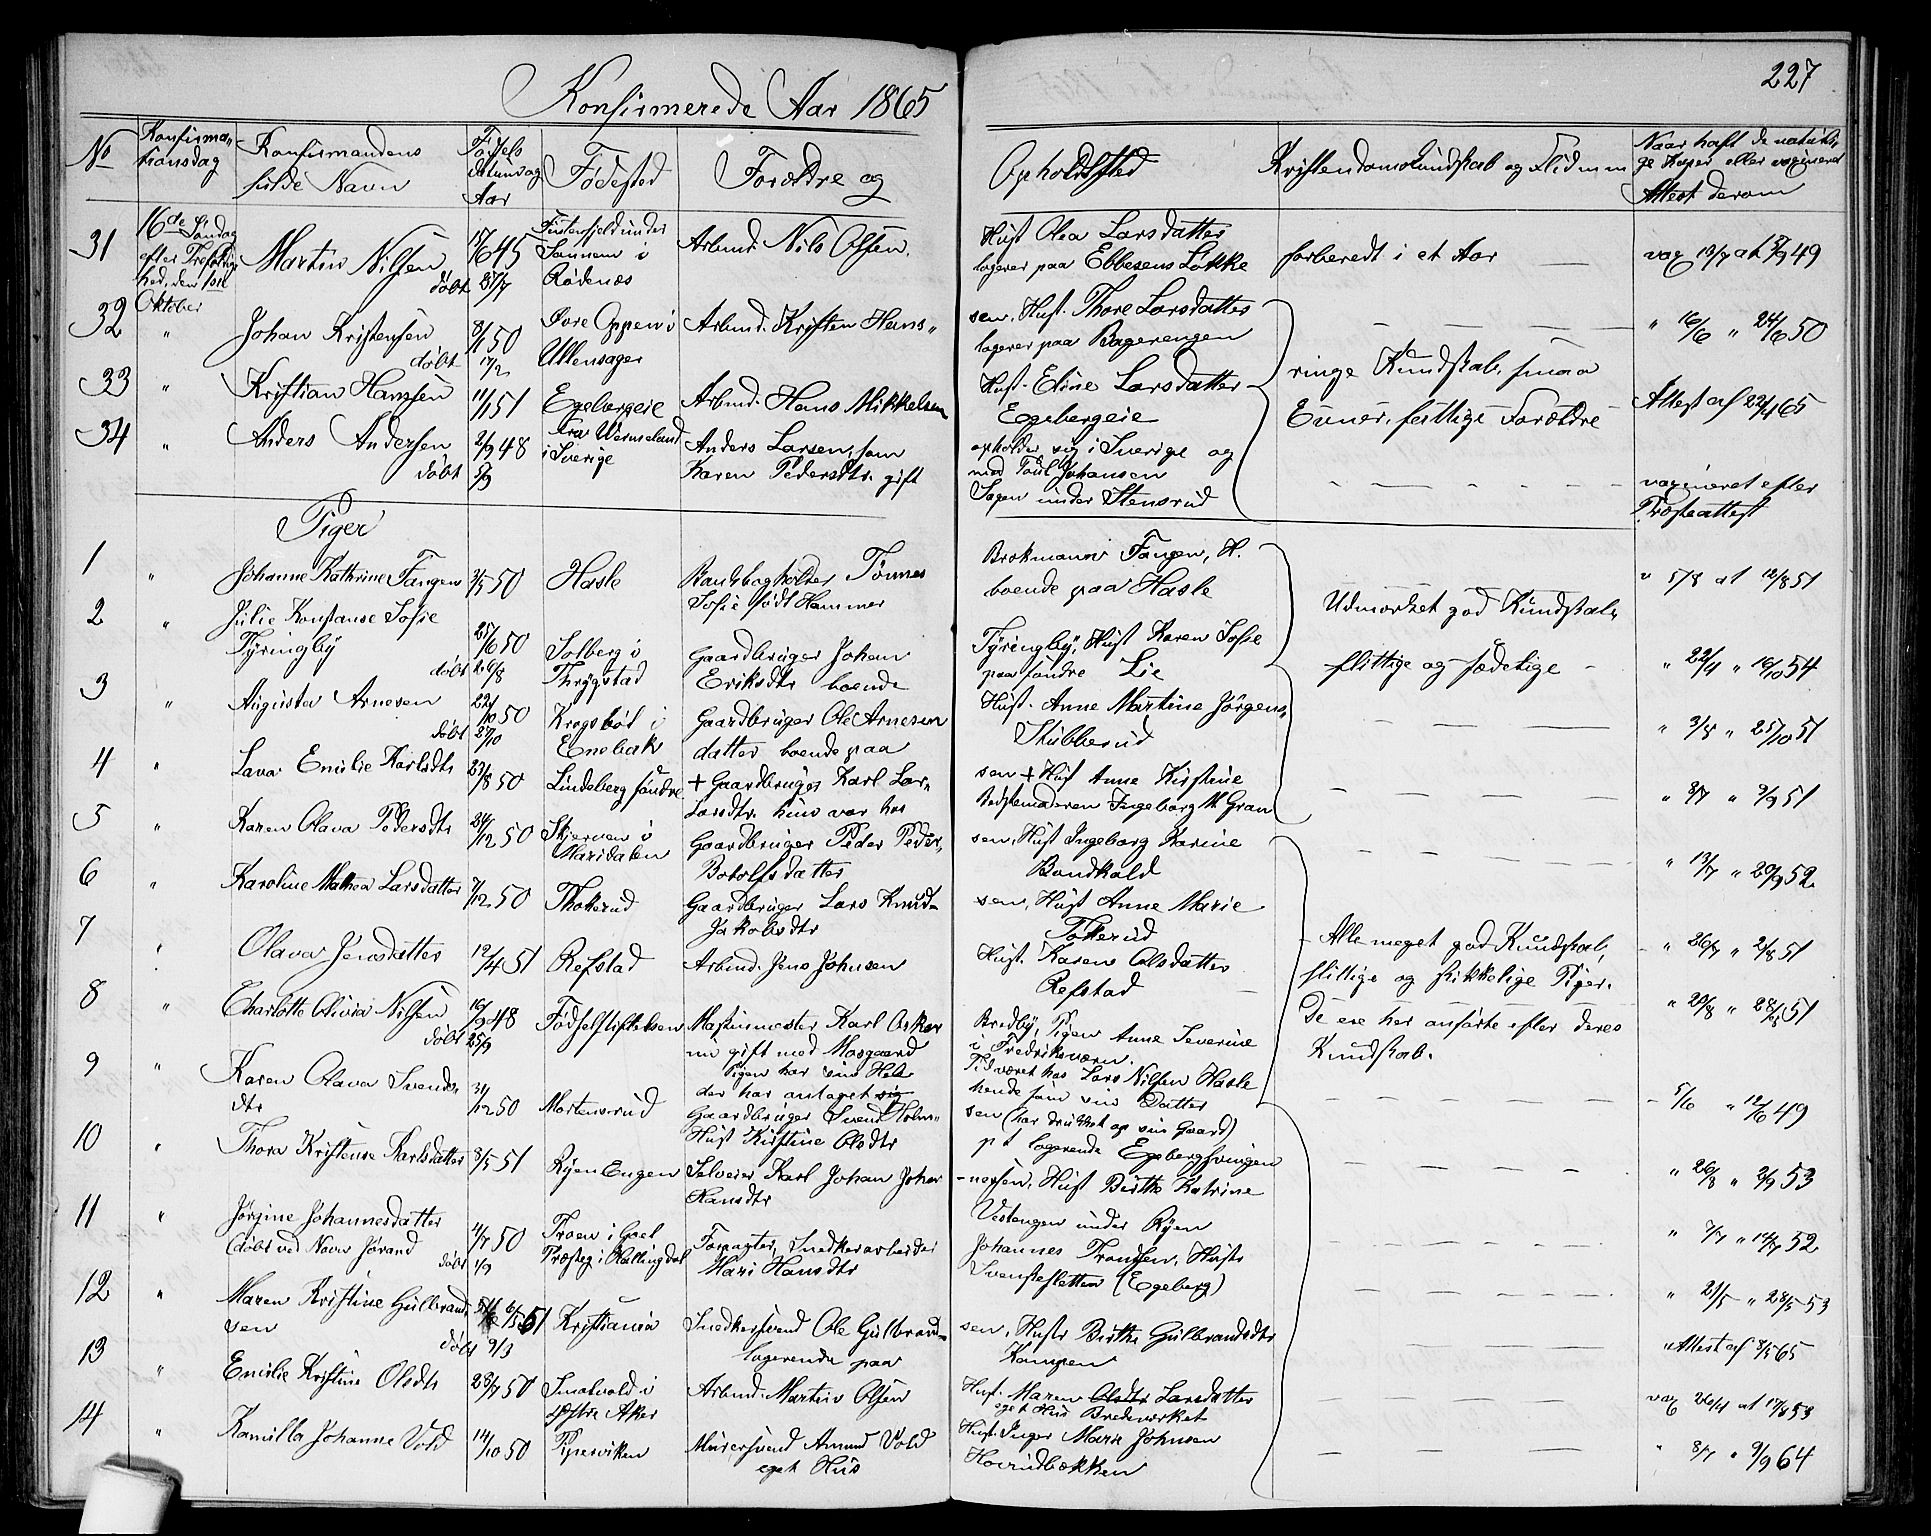 Konfirmerede Aar 1865
227
No
Konfirma-
tionsdag
Konfirmandens
fulde Navn
Fødsels
datum og
Aar
Fødested
Forældre og
Opholdssted
Kristendomskundskab og Flid m m
Naar haft de naturli-
ge Kopper eller vaxineret
Attest derom
31
16de Søndag
efter Trefoldig-
hed, den 1ste
Oktober
Martin Nilsen
døbt
Sannem i
Rødenæs
Arbmd. Nils Olsen.
Hust Olea Larsdatter
logerer paa Ebbesens Løkke
forberedt i et Aar
vax 13/7 at 49
32
"
Johan Kristensen
døbt
8/1 50
17/2
Ovre Oppen i
Ullensager
Arbmd. Kristen Hans-
sen, Hust. Thore Larsdatter
logerer paa Bagerengen
" 16/6 " 24/6 50
33
"
Kristian Hansen
11/1 51
Egebergeie
Arbmd. Hans Mikkelsen
Hust. Eline Larsdatter
Egebergeie
ringe Kundskab, smaa
Evner, fattige Forældre
Attest af 22/4 65
34
"
Anders Andersen
døbt
2/9 48
9/9
Fra Wermeland
i Sverige
Anders Larsen, som
Karen Pedersdtr. gift
opholder sig i Sverige og
med Poul Johansen
Sagen under Stensrud
vaxineret efter
Præsteattest
Piger
1
"
Johanne Kathrine Fangen
3/5 50
Hasle
Bankbogholder Tønnes
Sofie født Hammer
Brokmann Fangen, H.
boende paa Hasle
Udmærket god Kundskab,
flittige og sædelige
v 5/8 at 12/8 51
2
"
Julie Konstanse Sofie
Tyringby
døbt
25/6 50
26/8
Solberg i
Thrygstad
Gaardbruger Johan
Eriksdtr boende
Tyringby, Hust Karen Sofie
paa søndre Lie
" 22/4 " 16/10 54
3
"
Augusta Arnesen
døbt
22/10 50
27/10
Krogsbøl i
Enebak
Gaardbruger Ole Arnesen
datter boende paa
Hust. Anne Martine Jørgens-
Stubberud
" 3/8 " 25/10 51
4
"
Lava Emilie Karlsdtr
23/8 50
Lindeberg søndre
+ Gaardbruger Karl Lar-
Larsdtr. hun var hos
sen + Hust Anne Kirstine
Bedstemoderen Ingeborg M Gran
" 8/7 " 9/9 51
5
"
Karen Olava Pedersdtr
24/12 50
Skjerven i
Maridalen
Gaardbruger Peder Peder-
Botolfsdatter
sen, Hust Ingeborg Karine
Bondkald
" 13/7 " 20/9 52
6
"
Karoline Mathea Larsdatter
7/12 50
Thokerud
Gaardbruger Lars Knud-
Jakobsdtr
sen, Hust Anne Marie
Tokerud
Alle meget god Kundskab,
flittige og skikkelige Piger.
De ere her anførte efter deres
Kundskab.
" 26/7 " 2/8 51
7
"
Olava Jensdatter
12/4 51
Refstad
Arbmd. Jens Johnsen
Hust. Karen Olsdatter
Refstad
" 20/8 " 51
8
"
Charlotte Olivia Nilsen
døbt
16/9 48
25/9
Fødselsstiftelsen
Maskinmester Karl Oskar
nu gift med Mosgaard
Pigen har sin Hele
der har antaget sig
Bredby, Pigen Anne Severine
i Fredriksværn.
Tid været hos Lars Nilsen Hasle
hende som sin Datter
5/10 " 49
9
"
Karen Olava Svends-
dtr
31/12 50
Mortensrud
Gaardbruger Svend Holm-
Hust Kirstine Olsdtr
sen (har drukket op sin Gaard)
p t logerende Egebergsvingen
" 26/8 " 2/9 53
10
"
Thora Kristense Karlsdatter
8/5 51
Ryen Engen
Selveier Karl Johan Johan-
Hansdtr
nesen, Hust Birthe Katrine
Vestengen under Ryen
" 7/7 " 14/7 52
11
"
Jørgine Johannesdatter
(døbt ved Navn Jørand
døbt
4/7 50
1/9
Troen i Goel
Præsteg i Hallingdal
Forpagter, Snedkerarbeider
Mari Hansdtr
Johannes Trondsen, Hustr
Svenskesletten (Egeberg)
" 21/5 " 28/5 53
12
"
Maren Kristine Gulbrand-
sen
døbt
51
9/3
Kristiania
Snedkersvend Ole Gulbrand-
logerende paa
sen, Hustr Birthe Gulbrandsdtr
Kampen
" Attest af 8/5 65
13
"
Emilie Kristine Olsdtr
28/7 50
Smalvold i
østre Aker
Arbmd. Martin Olsen
Hust. Maren Olsdtr Larsdatter
eget Hus Bredeværket
vax 26/4 at 53
14
"
Kamilla Johanne Vold
14/10 50
Pipervikem
Murersvend Amund Vold
eget Hus
Hust. Inger Marie Johnsen
Hovindbækken
" 8/7 " 9/9 64